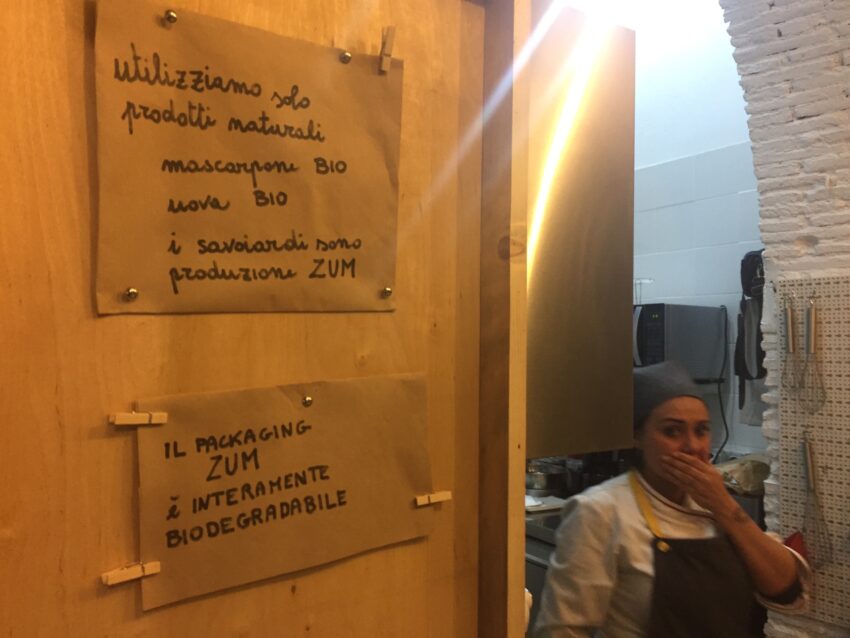 utilizziamo solo
prodotti naturali
mascarpone BIO
uova BIO
i savoiardi sono
produzione ZUM
IL PACKAGING
ZUM
è INTERAMENTE
BIODEGRADABILE